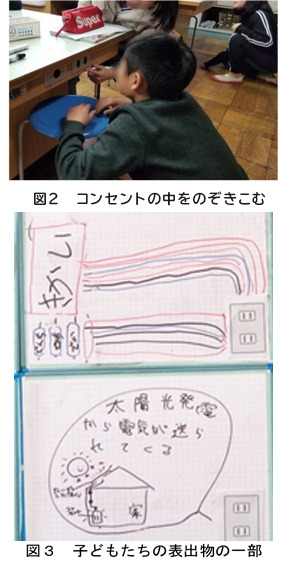 Super
図2　コンセントの中をのぞきこむ
きかい
太陽光発電
から電気が送ら
れてくる
家
図3　子どもたちの表出物の一部